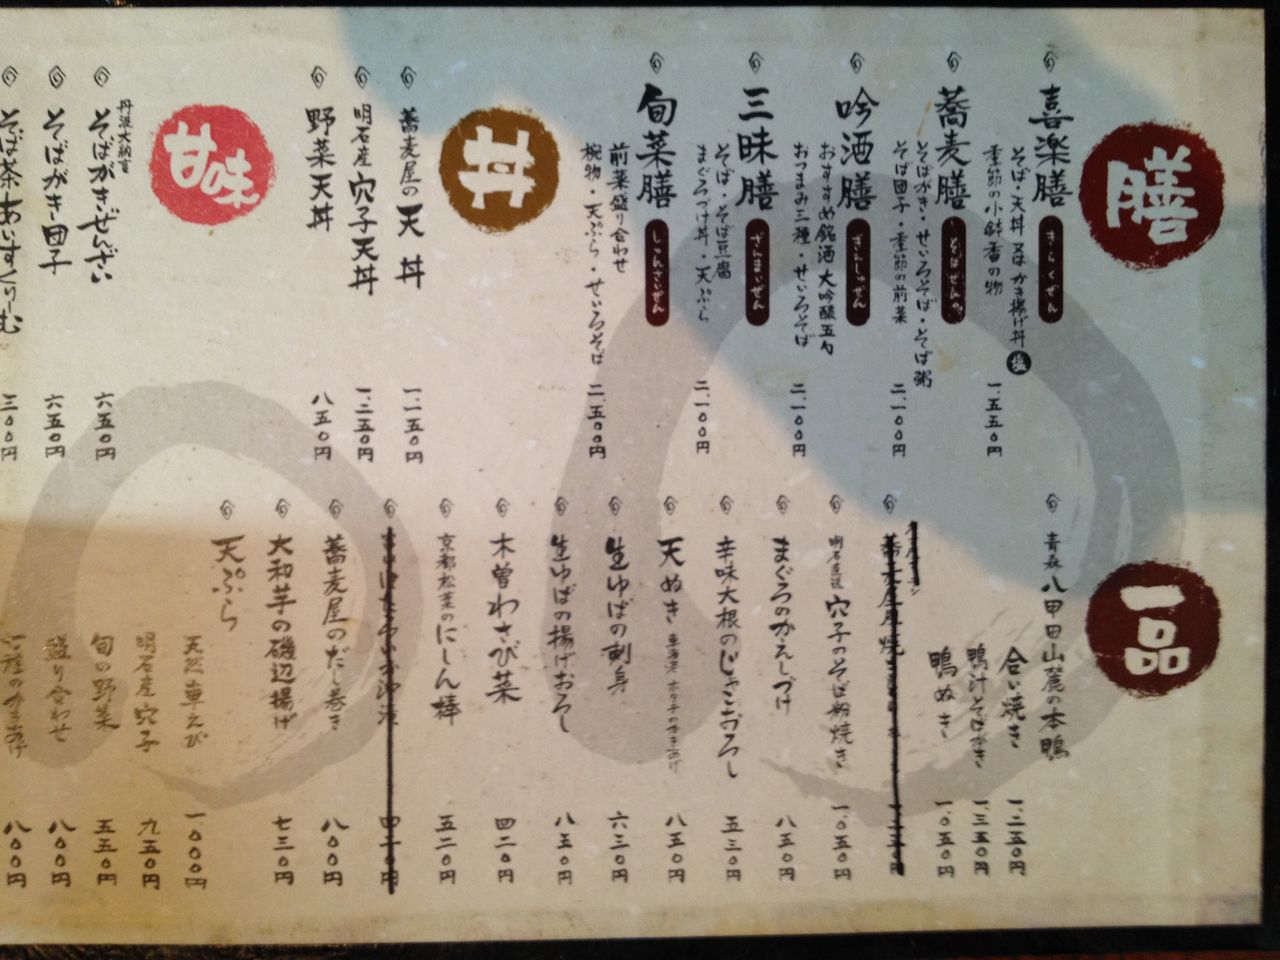 膳
喜楽膳 きらくぜん
そば・天丼 又は かき揚げ丼 温
季節の小鉢 香の物
一、五五〇円
蕎麦膳 そばぜん
そばがき・せいろそば・とそば粥
そば団子・季節の前菜
二、一〇〇円
吟酒膳 ぎんしゅぜん
おすすめ銘酒 大吟醸五勺
おつまみ三種・せいろそば
二、一〇〇円
三昧膳 ざんまいぜん
そば・そば豆腐
まぐろづけ丼・天ぷら
二、一〇〇円
旬菜膳 しゅんさいぜん
前菜盛り合わせ
椀物・天ぷら・せいろそば
二、五〇〇円
丼
蕎麦屋の天丼 一、一五〇円
明石産 穴子天丼 一、二五〇円
野菜天丼 八五〇円
甘味
丹波大納言
そばがきぜんざい 六五〇円
そばがき団子 六五〇円
そば茶あいすくりーむ 三〇〇円
一品
青森 八甲田山麓の本鴨
合い焼き 一、二五〇円
鴨汁そばがき 一、三五〇円
鴨ぬき 一、〇五〇円
明石直送 穴子のそば粉焼き 一、〇五〇円
まぐろのかえしづけ 八五〇円
辛味大根のじゃこおろし 五三〇円
天ぬき 車海老 ホタテのかきあげ 八五〇円
生ゆばの刺身 六三〇円
生ゆばの揚げおろし 八五〇円
木曽わさび菜 四二〇円
京都松葉のにしん棒 五二〇円
蕎麦屋のだし巻き 八〇〇円
大和芋の磯辺揚げ 七三〇円
天ぷら
天然車えび 一、〇〇〇円
明石産穴子 九五〇円
旬の野菜 五五〇円
盛り合わせ 八〇〇円
八〇〇円